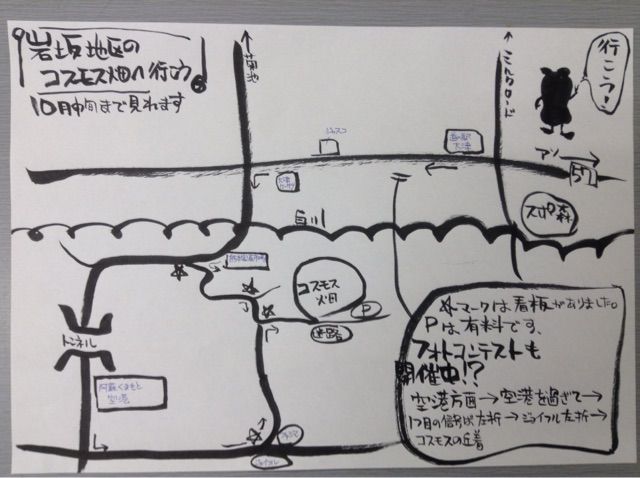 岩坂地区の
コスモス畑へ行こう
10月中旬まで見れます
菊池
ミルクロード
行こう!
ジャスコ
道の駅
大津
アソ
57
スポ森
白川
コスモス
畑
P
迷路
トンネル
阿蘇くまもと
空港
ジョイフル
☆マークは看板がありました。
Pは有料です。
フォトコンテストも
開催中!?
空港方面→空港を過ぎて→
1つ目の信号は左折→ジョイフル左折→
コスモスの丘着